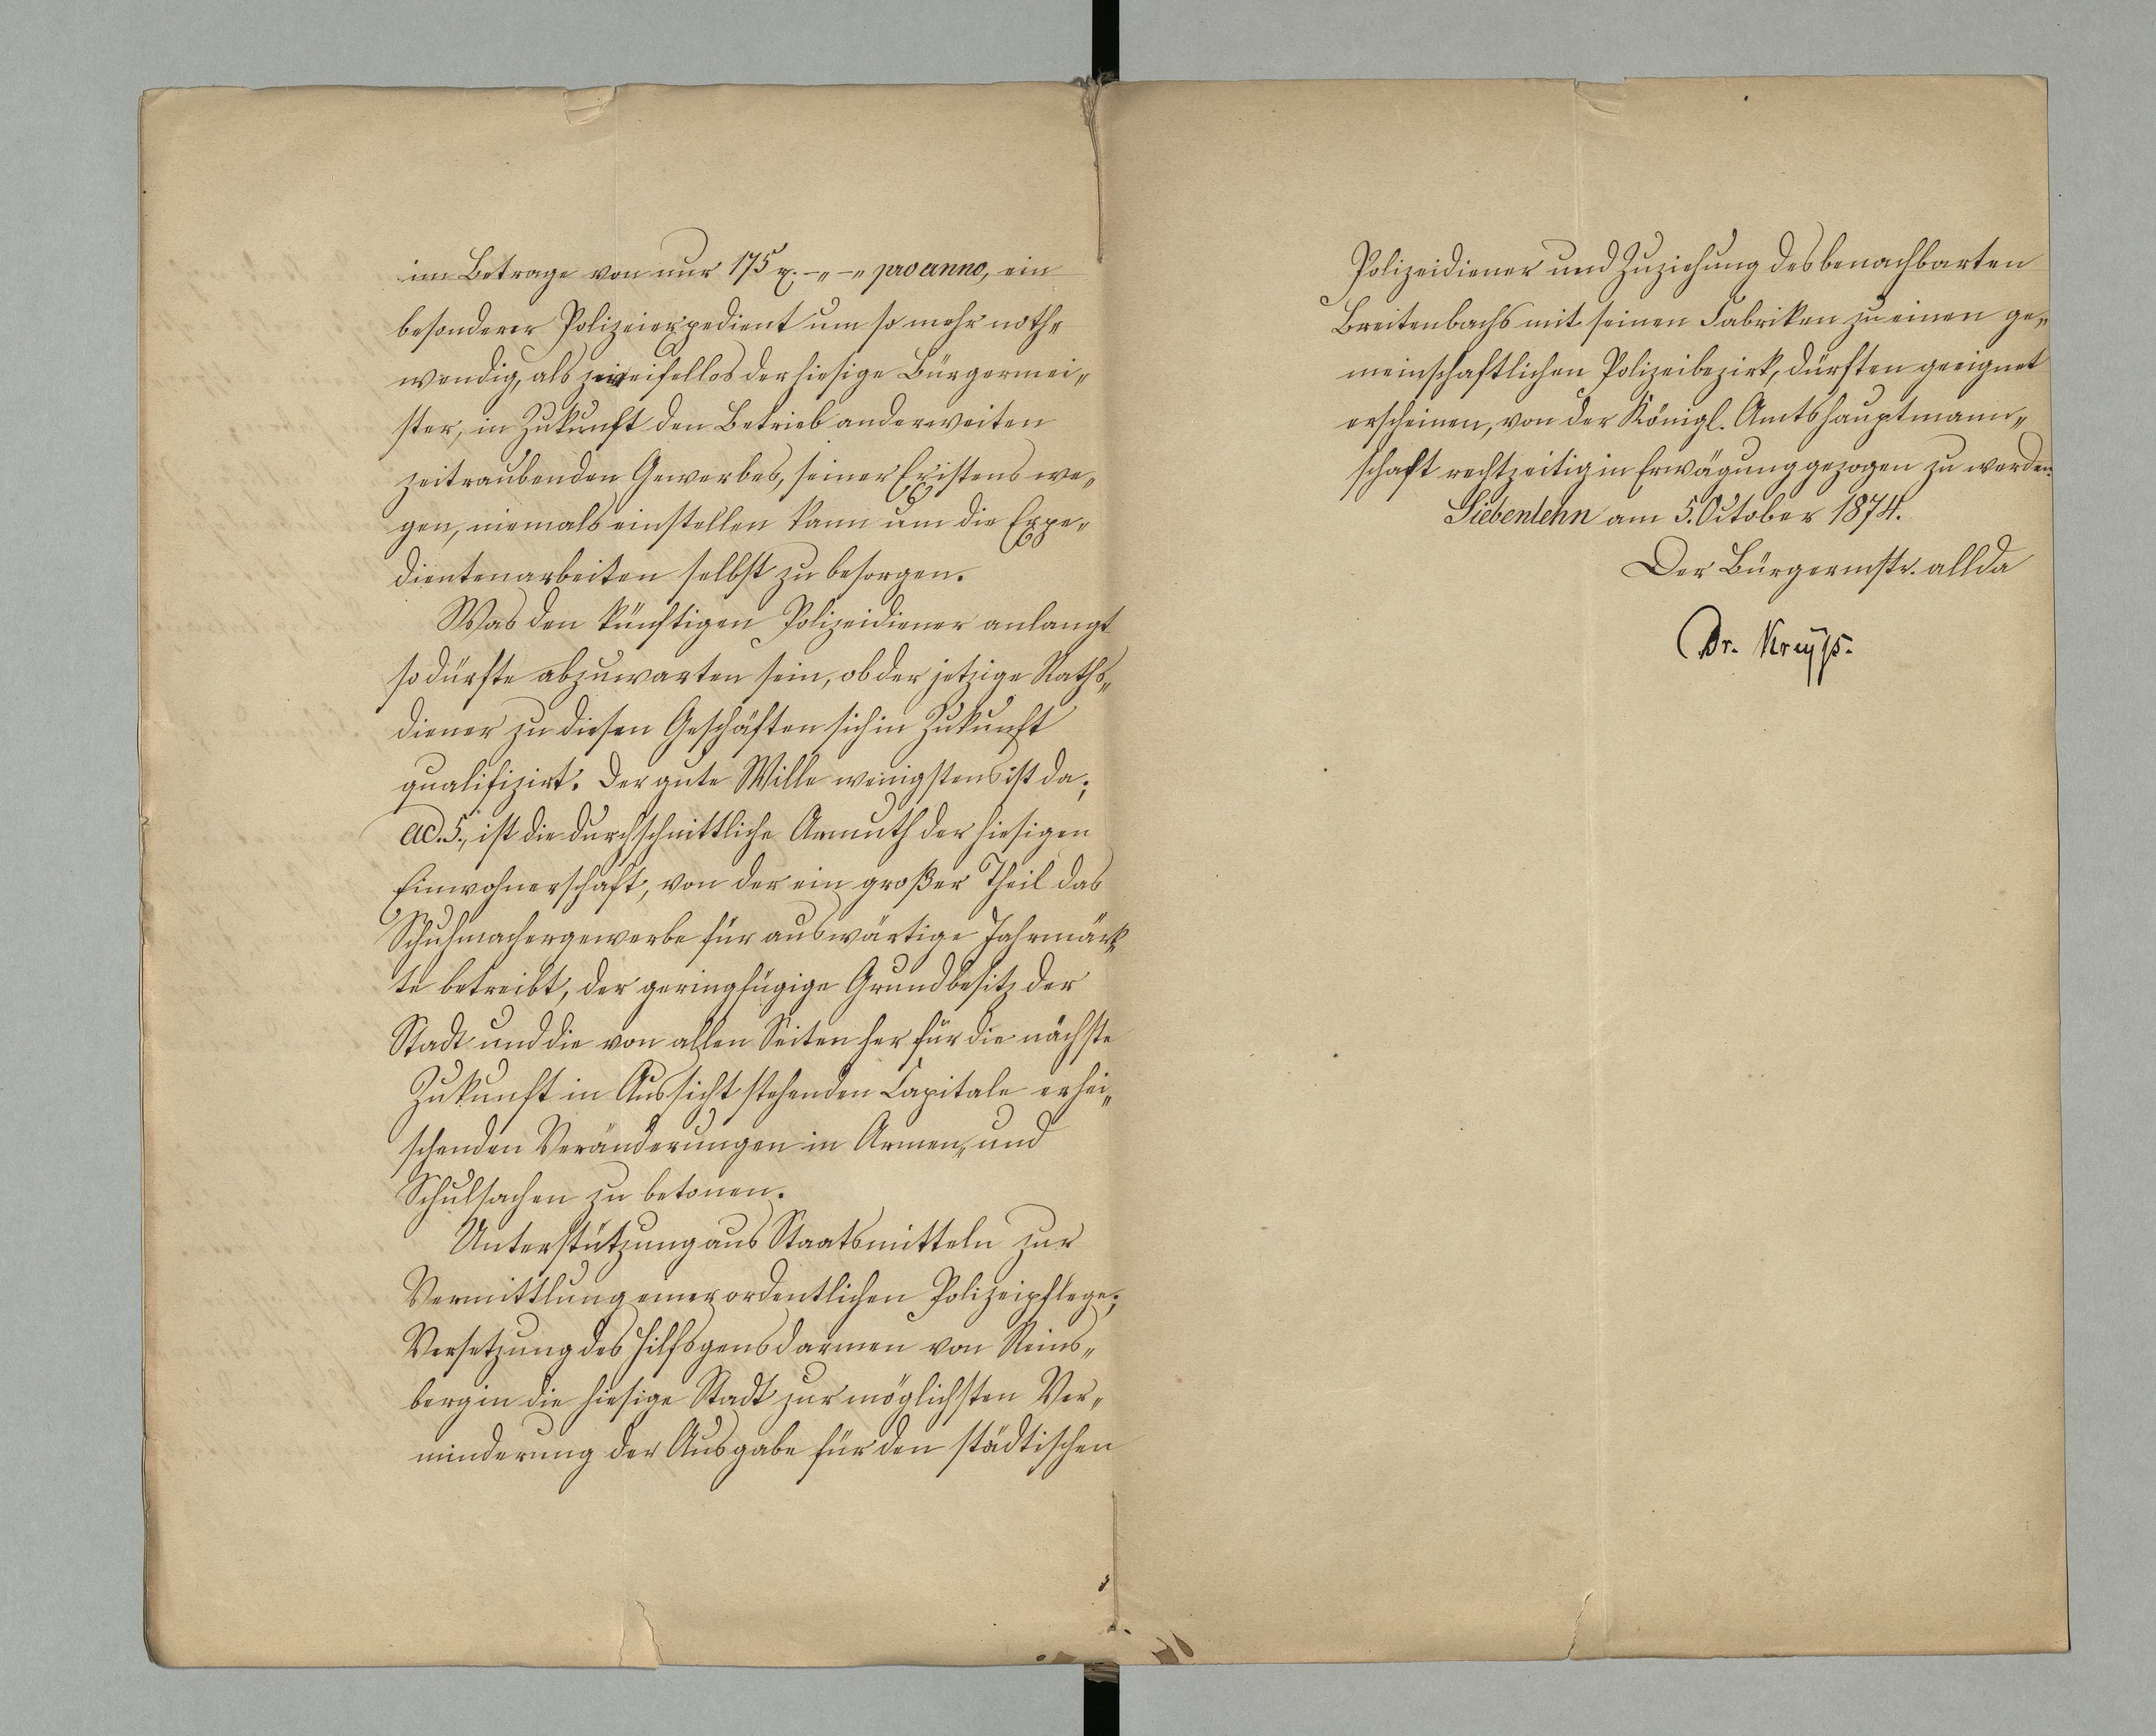 im Betrage von nur 175 r. -„ -„ pro anno, ein
besonderer Polizeiexpedient um so mehr noth„
wendig, als zweifellos der hiesige Bürgermei„
ster, in Zukunft den Betrieb anderweiten
zeitraubenden Gewerbes, seiner Existens we„
gen, niemals einstellen kann um die Expe„
dientenarbeiten selbst zu besorgen.
Was den künftigen Polizeidiener anlangt
so dürfte abzuwarten sein, ob der jetzige Raths„
diener zu diesen Geschäften sich in Zukunft
qualifizirt. Der gute Wille wenigstens ist da;
ad. 5., ist die durchschnittliche Armuth der hiesigen
Einwohnerschaft, von der ein großer Theil das
Schuhmachergewerbe für auswärtige Jahrmärk„
te betreibt, der geringfügige Grundbesitz der
Stadt und die von allen Seiten her für die nächste
Zukunft in Aussicht stehenden Capitale erhei„
schenden Veränderungen in Armen„ und
Schulsachen zu betonen.
Unterstützung aus Staatsmitteln zur
Vermittlung einer ordentlichen Polizeipflege;
Versetzung des Hilfsgensdarmen von Reins„
berg in die hiesige Stadt zur möglichsten Ver„
minderung der Ausgabe für den städtischen
Polizeidiener und Zuziehung des benachbarten
Breitenbachs mit seinen Fabriken zu einen ge„
meinschaftlichen Polizeibezirk, dürften geeignet
erscheinen, von der Königl. Amtshauptmann„
schaft rechtzeitig in Erwägung gezogen zu werden.
Siebenlehn am 5. October 1874.
Der Bürgermstr. allda
Dr. Kreyß.